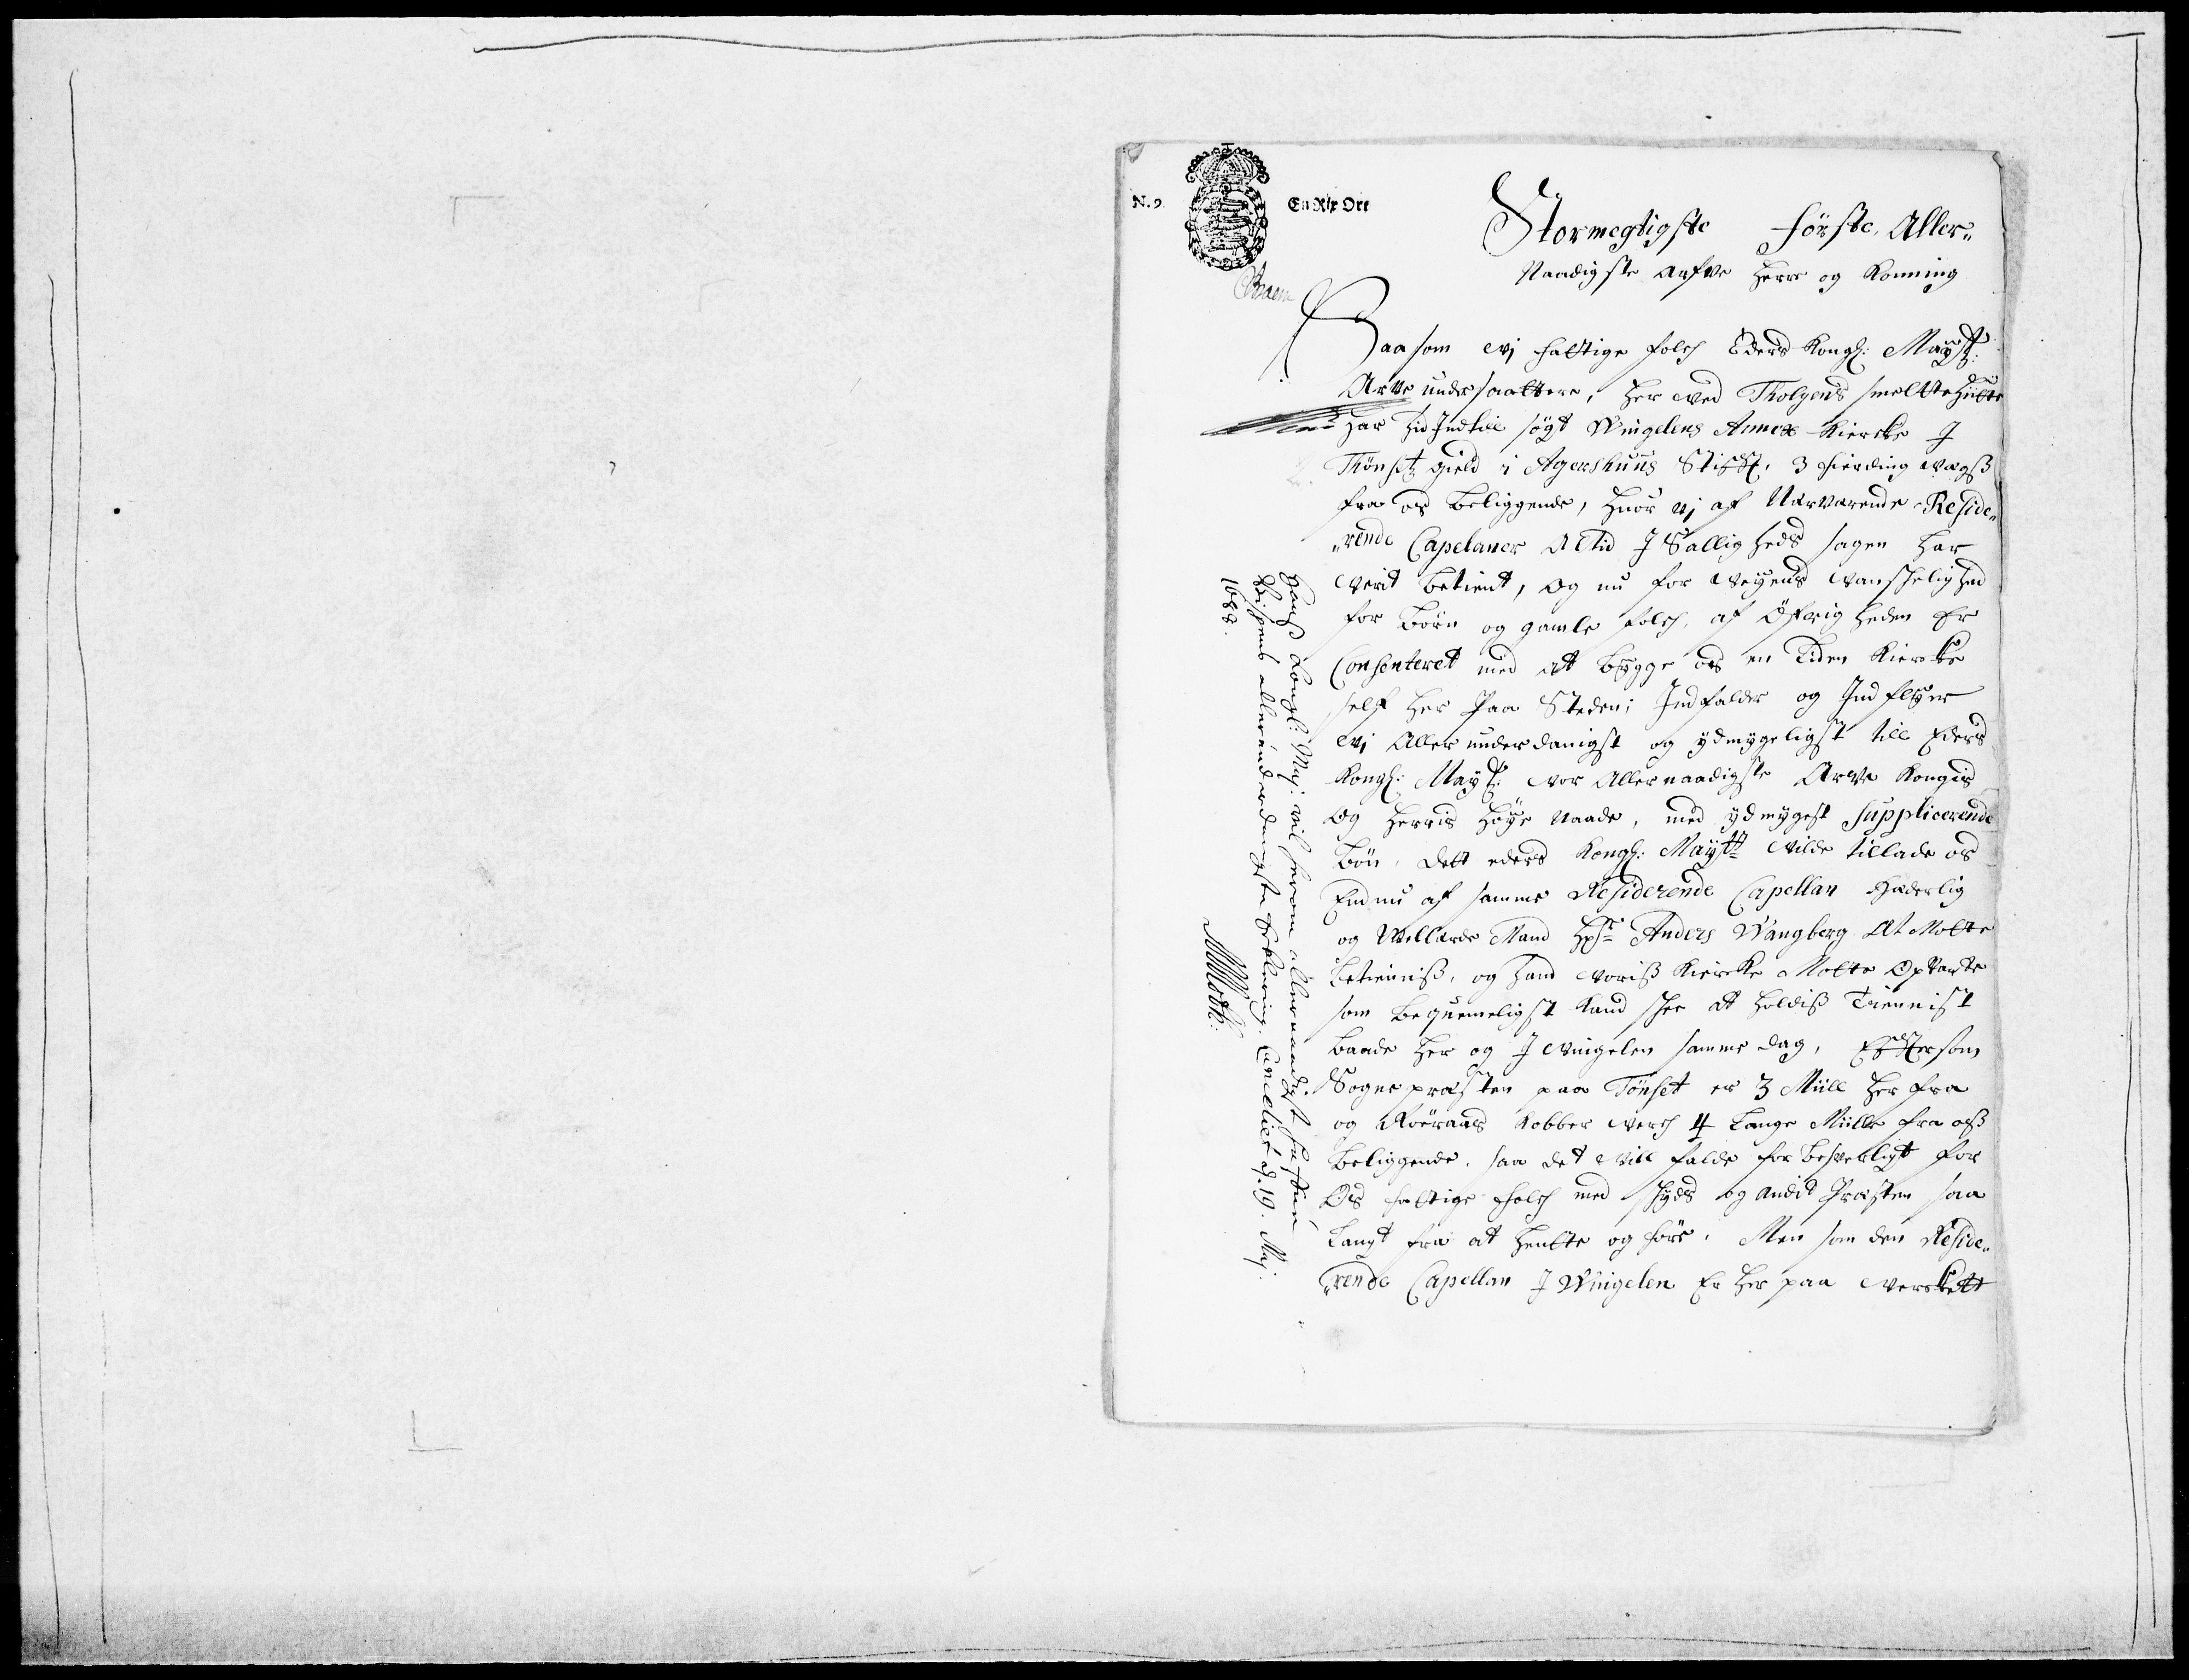 N. 9.
En Rix Ort
Stormegtigste Förste, Aller„
Naadigste arfve Herre og Konning
Saasom vi fattige folch Eders Kongl: Mayst:
Arve undersaattere, her ved Tholgens smelttehütte
har hid Indtill sögt Wingelens Annex Kiercke J
Thönsetz gield i Agershuus Stifft, 3 fierding vegß
fra os beliggende, huor vi af Nærværende Reside„
„rende Capelaner Altid J Salligheds sagen har
verit betient, og nu for veyens vanskelighed
for Börn og gamle folch, af Öfrigheden Er
Consenteret med at bygge os en liden Kiercke
self her paa Steden; Indfalder og Indflyer
vi Allerunderdanigst og ydmygeligst till Eders
Kongl: Mayst: vor Allernaadigste Arve Kongis
og Herris høye Naade, med ydmygest Supplicerende
bön, dett eders Kongl: Maystt vilde tillade os
End nu af samme Residerende Capellan Hæderlig
og Wellærde Mand Hr Anders Wangberg At Motte
betieniß, og hand voriß Kiercke Motte Opvarte
som bequemeligst kand skee at holdiß Tiennist
baade her og J Vingelen samme dag, Efftersom
Sogne præsten paa Tönset er 3 Miill her fra
og Röeraas Kobber verch 4 lange Miille fra oß
beliggende, saa det vill falde for besverligt for
Os fattige folch med skyds og andit Præsten saa
langt fra at hentte og före. Men som den Reside„
„rende Capellan J Wingelen Er her paa Verckett
Hans Kongl: May: vil herom allernaadigst hafue
Bispens allerunderdanigste Erklering. Cancelliet d. 19. Maj.
1688.
MMoth: